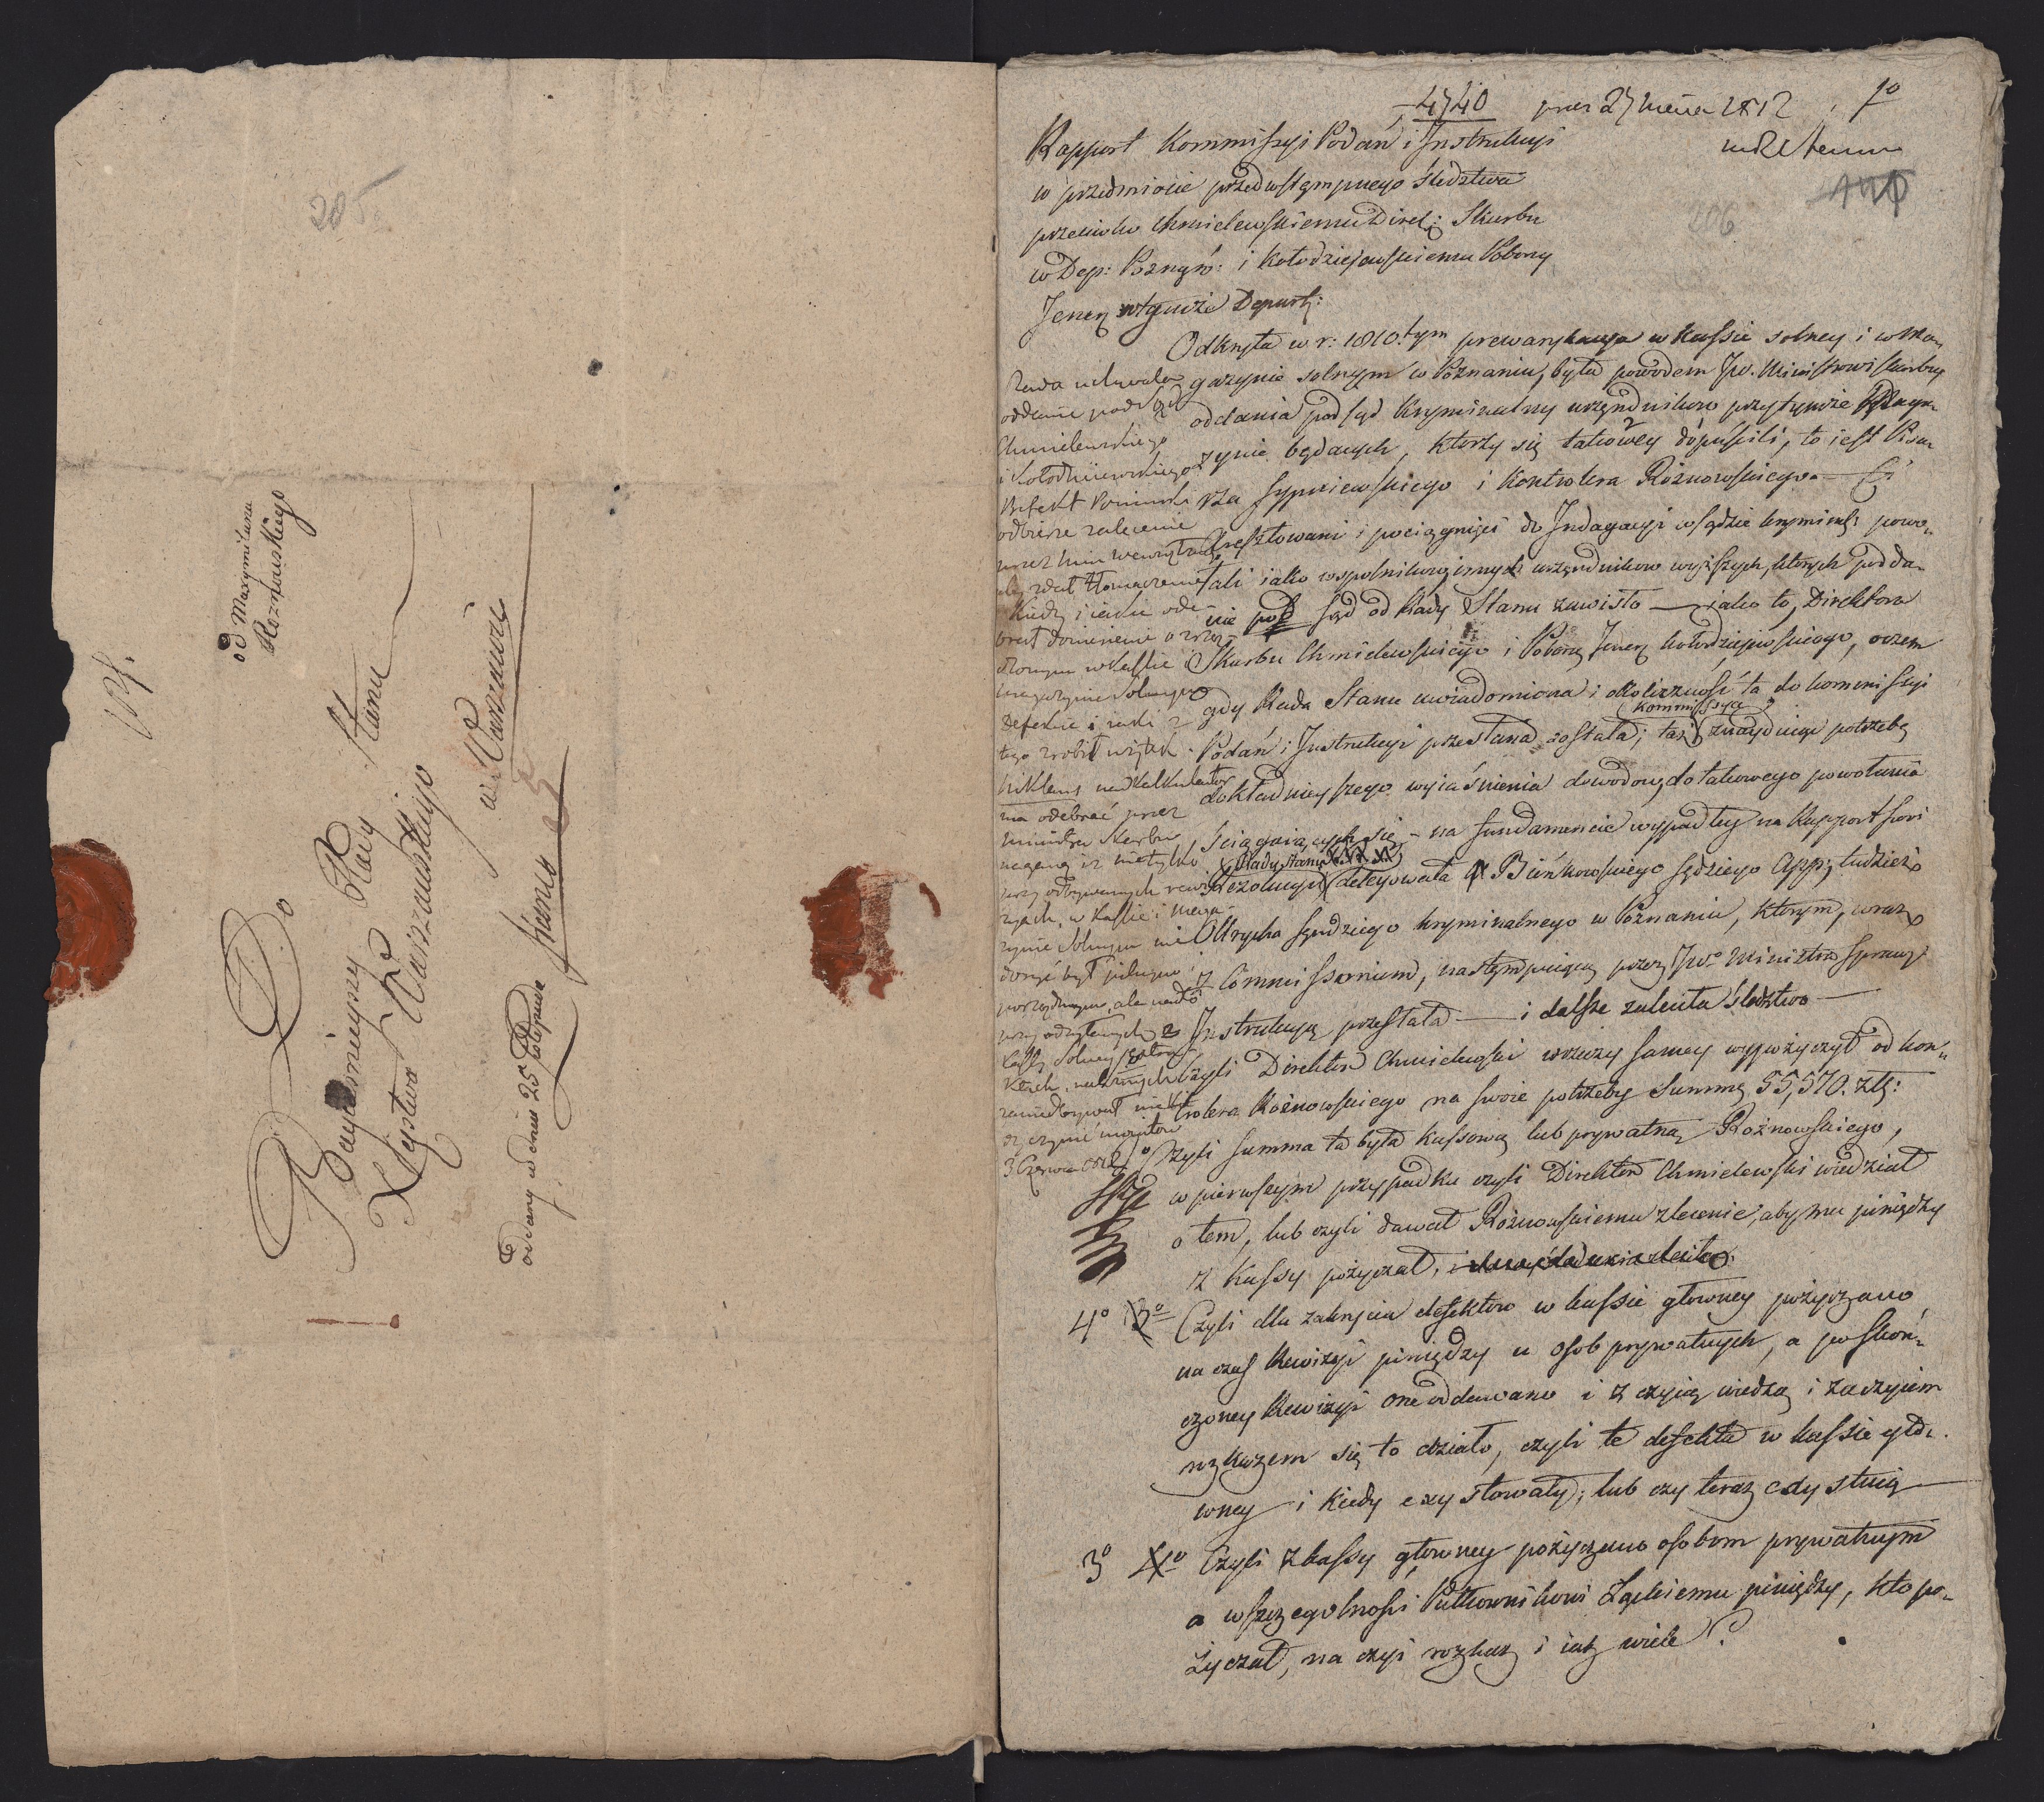 205
124.
od Maxymiliana
Roznowskiego
Do
Nayjaśnieyszey Rady Stanu
Xięstwa Warszawskiego
w Warszawie
oddany w dniu 25 Listopada
franco
4740 prez 27 1812
10
206
Rapport Kommissyi Podań i Instrukcyi
w przedmiocie przedwstępnego śledztwa
przeciwko Chmielewskiemu Direk: Skarbu
w Dep: Poznań: i Kołodziejewskiemu Poborcy
Jener: wtymże Depart:
Odkryta w r: 1810.tym prewarykacya w kassie solney i w Ma„
gazynie solnym w Poznaniu, była powodem Jw. Ministrowi Skarbu
oddania pod sąd kryminalny urzędników przy tymże Maga„
zynie będących, ktorzy się takowey dopuścili, to iest Pisa„
rza Sypniewskiego i Kontrolera Rożnowskiego. — Ci
aresztowani i pociągnięci do Indagacyi w sądzie kryminal: powo„
łali iako wspolnikow, innych urzędnikow wyższych, ktorych podda„
nie pod sąd od Rady Stanu zawisło — iako to, Direktora
Skarbu Chmielewskiego i Poborcę Jener: Kołodziejewskiego, oczem
gdy Rada Stanu uwiadomiona i okoliczność ta do kommissyi
Podań i Instrukcyi przesłaną została; taż Kommissya znayduiąc potrzebę
dokładnieyszego wyiaśnienia dowodow, do takowego powołania
ściągaiących się — na fundamencie wypadłey na Rapport swoi
Rady Stanu Rezolucyi delegowała Bieńkowskiego sędziego App: tudzież
Ollrycha sędziego kryminalnego w Poznaniu, ktorym, wraz
z Commissorium, następuiącą przez Jwo Ministra Spraw:
Instrukcyą przesłała — i dalsze zaleciła śledztwo —
Czyli Direktor Chmielewski w rzeczy samey wypożyczył od kon„
trolera Rożnowskiego na swoie potrzeby Summę 55,570. złł:
Czyli summa ta była kassową lub prywatną Rożnowskiego,
w pierwszym przypadku czyli Direktor Chmielewski wiedział
o tem, lub czyli dawał Rożnowskiemu zlecenie, aby mu pieniędzy
z Kassy pożyczał,
4° 3° Czyli dla zakrycia defektow w kassie głowney pożyczano
na czas Rewizyi pieniędzy u osob prywatnych, a po skoń„
czoney Rewizyi one oddawano i z czyią wiedzą i za czyiem
rozkazem się to działo, czyli te defekta w kassie gło„
wney i kiedy exystowały; lub czy teraz exystuią
3° 4° Czyli z kassy głowney pożyczano osobom prywatnym
a wszczegolnosci Pułkownikowi Łąckiemu pieniędzy, kto po„
życzał, na czyi rozkaz i iak wiele?
Rada uchwala
oddanie pod Sąd
Chmielewskiego
i Kołodziiewskiego
Prefekt Poninski
odbierze zalecenie
przez Min: wewnętrzn:
aby zdał tłomaczenie
kiedy i iakie ode
brał doniesienie o
w kassie i
magazynie Solnym
defekcie i iaki z
tego zrobił użytek.
ma odebrać przez
Ministra Skarbu
naganę iż nietylko
przy odbywanych rewi
zyach w Kassie i maga
zynie Solnym nie
dosyć był pilnym i
porządnym, ale nadto
przy
Kassy Solney
zaniedbywał
czynić
3 Czerwca 1812